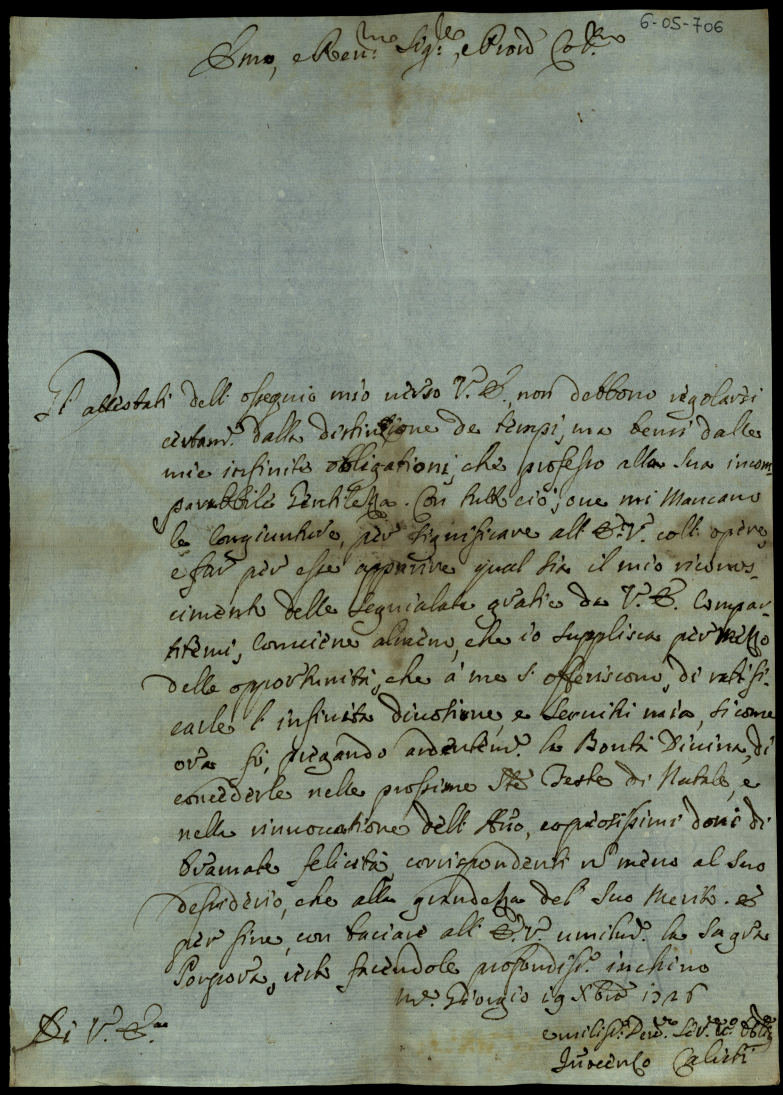 6-05-706
Emo, e Ren:mo Sig:re, e Pron Col:mo
Gl'attestati dell'ossequio mio verso V.E. non debbono regolarsi
certam.te dalla distinzione de tempi, ma bensi dalle
mie infinite obligationi, che professo alla sua incom-
parabbile Gentilezza. Con tutto ciò, ove mi mancano
le congiunture, per significare all'E.V. coll'opere,
e far per esse apparire qual sia il mio ricono-
scimento delle segnialate gratie da V.E. compar-
titemi, conviene almeno, che io supplisca per mezzo
delle opportunità, che à me s'offeriscono, di ratifi-
carle l'infinita divotione, e servitù mia, sicome
ora fò, pregando ardentem.te la Bontà Divina, di
concederle nelle prossime S.te Feste di Natale, e
nella rinnovatione dell'Año, copiosissimi doni di
bramate felicità, corrispondenti nõ meno al suo
desiderio, che alla grandezza del suo merito. et
per fine, con baciare all'E.V. umilm.te la Sagra
Porpora, resto facendole profondiss.o inchino
M.e Giorgio 19 Xbre 1726
Di V. E.za
umiliss.o Dev.mo Ser.re Obl.mo
Innocenzo Calisti